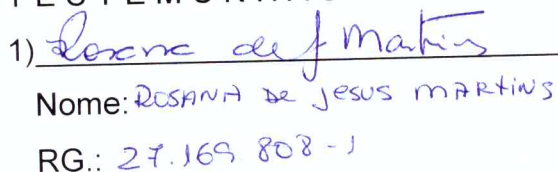 1) Rosana de J Martins
Nome: ROSANA DE JESUS MARTINS
RG.: 27.169 808-1